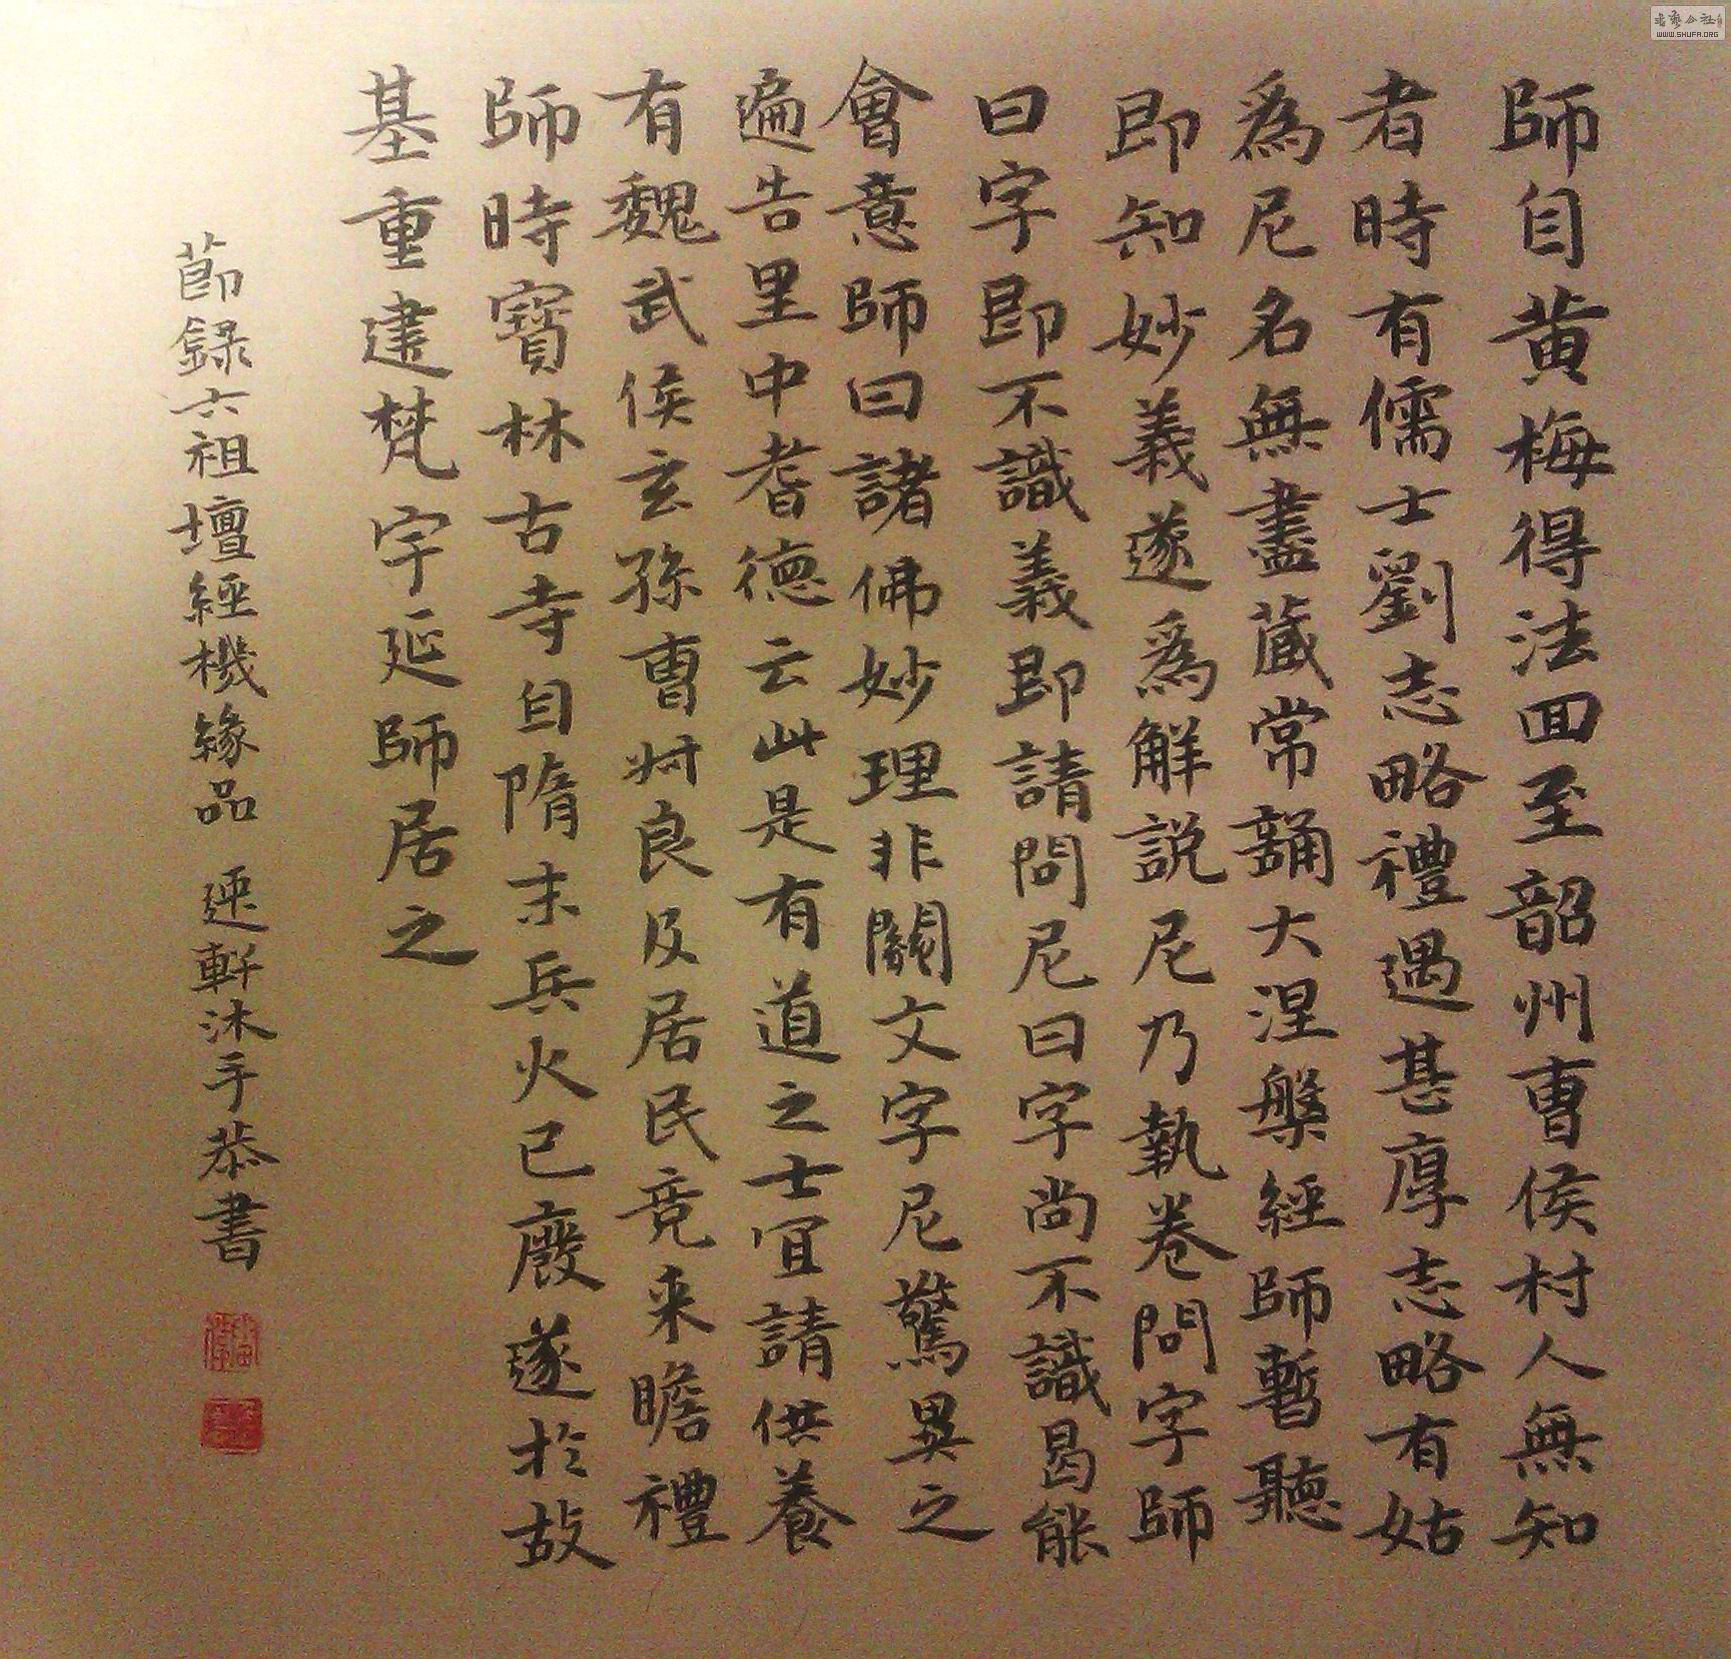 師自黃梅得法回至韶州曹侯村人無知
者時有儒士劉志略禮遇甚厚志略有姑
為尼名無盡藏常誦大涅槃經師暫聽
即知妙義遂為解說尼乃執卷問字師
曰字即不識義即請問尼曰字尚不識曷能
會意師曰諸佛妙理非關文字尼驚異之
遍告里中耆德云此是有道之士宜請供養
有魏武侯玄孫曹叔良及居民竞来瞻禮
師時寶林古寺自隋末兵火已廢遂於故
基重建梵宇延師居之
節錄六祖壇經機緣品 軒沐手恭書
WWW.SHUFA.ORG